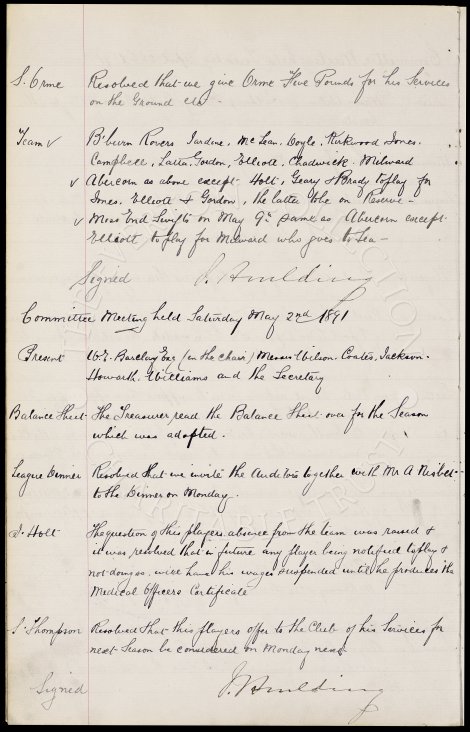 S. Orme Resolved that we give Orme Five Pounds for his Services
on the Ground etc.
Team v B'burn Rovers Jardine, McLean, Doyle, Kirkwood Jones,
Campbell, Latta, Gordon, Elliott, Chadwick, Milward
v Abercorn as above except Holt, Geary & Brady to play for
Jones, Elliott & Gordon, the latter to be on Reserve -
v Moss End Swifts on May 9th same as Abercorn except
Elliott to play for Milward who goes to Sea -
Signed
Committee Meeting held Saturday May 2nd 1891
Present W. E. Barclay Esq (in the chair) Messrs Wilson. Coates. Jackson.
Howarth. Williams and the Secretary
Balance Sheet The Treasurer read the Balance Sheet over for the Season
which was adopted.
League Dinner Resolved that we invite the Auditors together with Mr A Nisbet
to the Dinner on Monday.
J. Holt The question of this players absence from the team was raised &
it was resolved that in future any player being notified to play &
not doing so, will have his wages suspended until he produces the
Medical Officers Certificate
S. Thompson Resolved that this players offer to the Club of his Services for
next Season be considered on Monday next
Signed